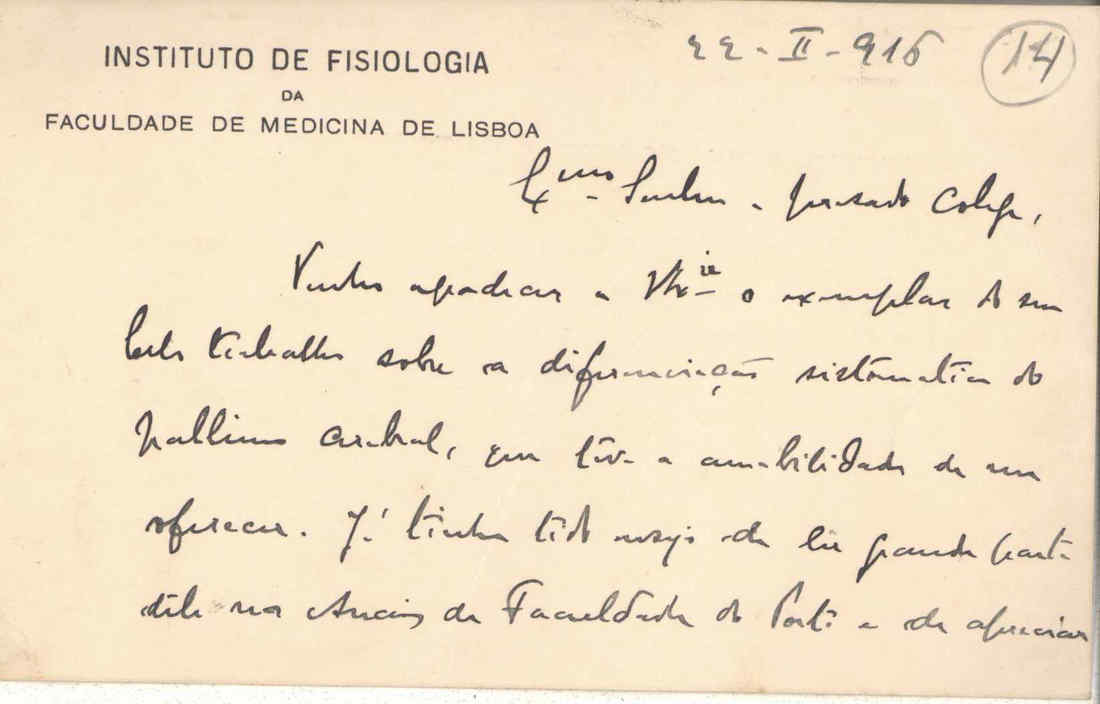 INSTITUTO DE FISIOLOGIA
DA
FACULDADE DE MEDICINA DE LISBOA
22-II-916
14
Exmo Senhor e presado Colega,
Venho agradecer a V. Ex.ia o exemplar do seu
belo trabalho sobre a diferenciação sistematica do
pallium cerebral, que teve a amabilidade de me
oferecer. Já tinha tido ensejo de ler grande parte
dele nos Anais da Faculdade do Porto e de apreciar